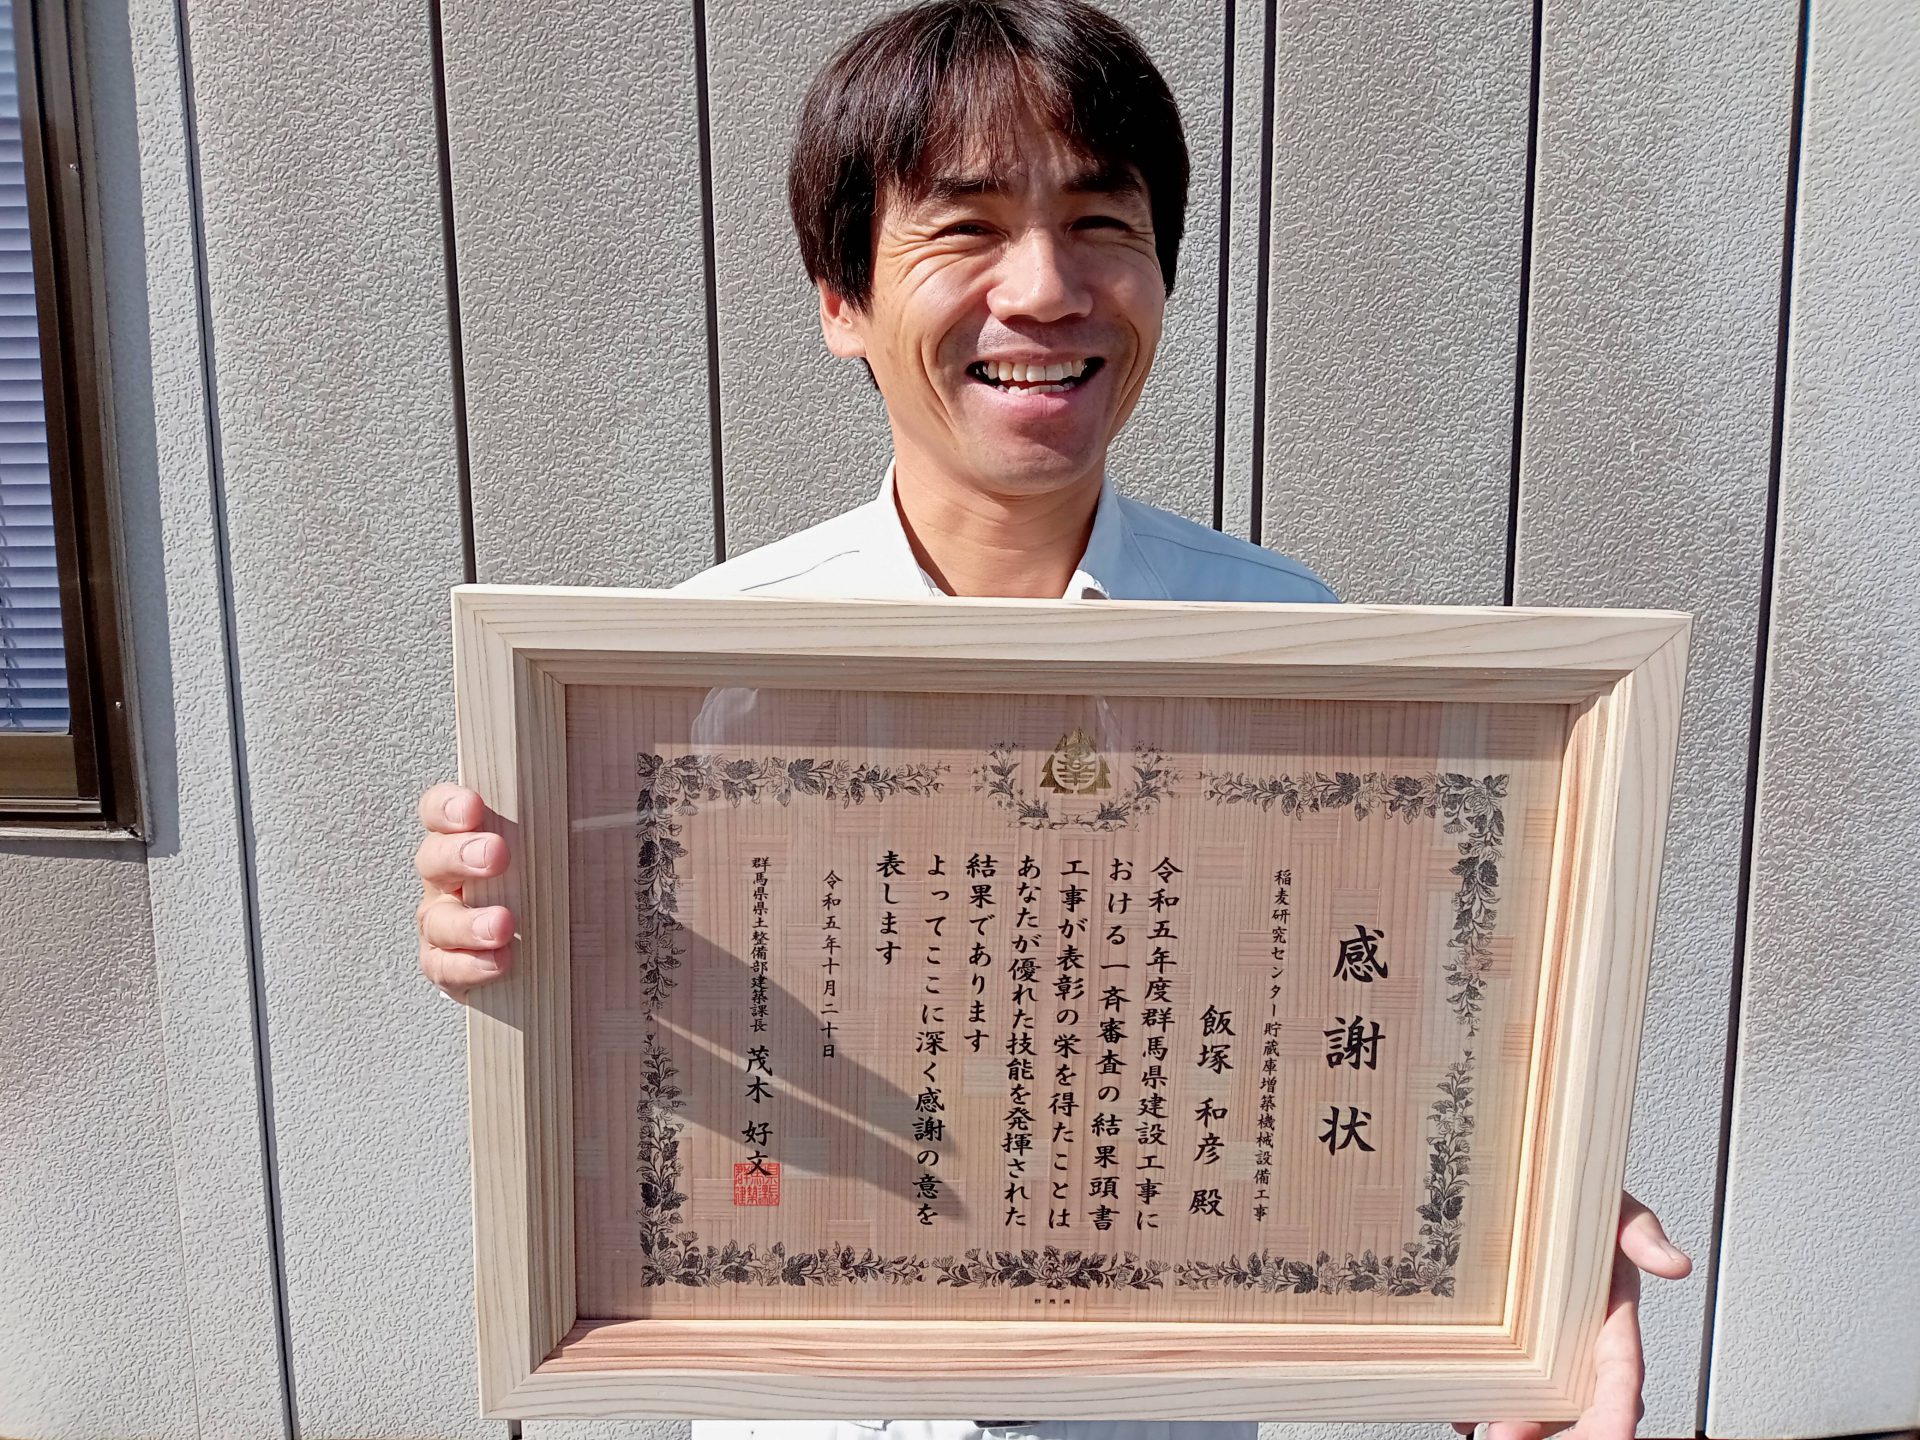 感謝状
稲麦研究センター貯蔵庫増築機械設備工事
飯塚 和彦 殿
令和五年度群馬県建設工事に
おける一斉審査の結果頭書
工事が表彰の栄を得たことは
あなたが優れた技能を発揮された
結果であります
よってここに深く感謝の意を
表します
令和五年十月二十日
群馬県県土整備部建築課長 茂木 好文
群馬県